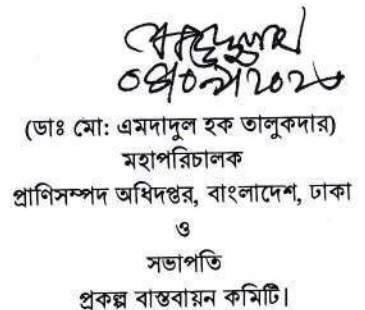 (ডাঃ মো: এমদাদুল হক তালুকদার)
মহাপরিচালক
প্রাণিসম্পদ অধিদপ্তর, বাংলাদেশ, ঢাকা
ও
সভাপতি
প্রকল্প বাস্তবায়ন কমিটি।